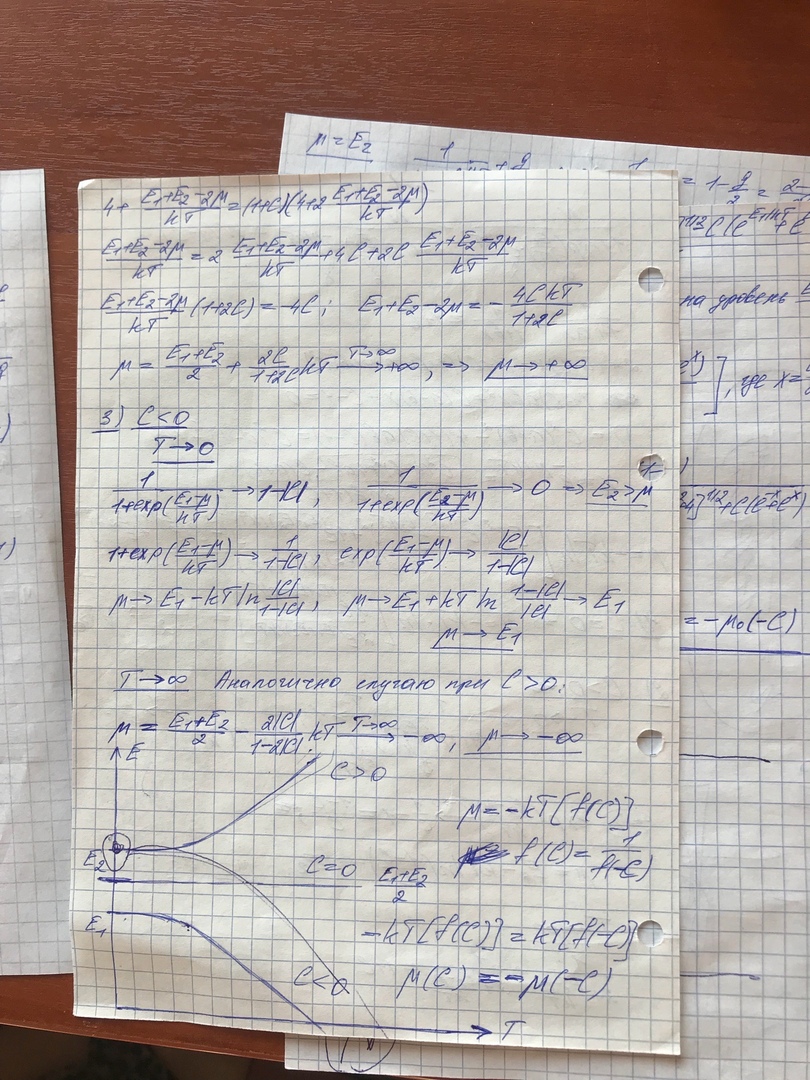 μ = E₂
4 + (E₁+E₂-2μ)/kT = (1+C)(4+2 (E₁+E₂-2μ)/kT)
(E₁+E₂-2μ)/kT = 2 (E₁+E₂-2μ)/kT + 4C + 2C (E₁+E₂-2μ)/kT
(E₁+E₂-2μ)/kT (1+2C) = -4C ; E₁+E₂-2μ = - 4CkT/(1+2C)
на уровень
μ = (E₁+E₂)/2 + 2C/(1+2C) kT T→∞ → +∞, => μ → +∞
, где x =
3) C<0
T→0
1/(1+exp((E₁-μ)/kT)) → 1-|C| ; 1/(1+exp((E₂-μ)/kT)) → 0 => E₂>μ
1+exp((E₁-μ)/kT) → 1/(1-|C|) ; exp((E₁-μ)/kT) → |C|/(1-|C|)
μ → E₁ - kT ln |C|/(1-|C|) , μ → E₁ + kT ln (1-|C|)/|C| → E₁
= -μ₀(-C)
μ → E₁
T→∞ Аналогично случаю при C>0:
μ = (E₁+E₂)/2 - 2|C|/(1-2|C|) kT T→∞ → -∞, μ → -∞
E
C>0
μ = -kT[f(C)]
f(C) = 1/f(-C)
E₂
C=0 (E₁+E₂)/2
E₁
-kT[f(C)] = kT[f(-C)]
C<0
μ(C) = -μ(-C)
T